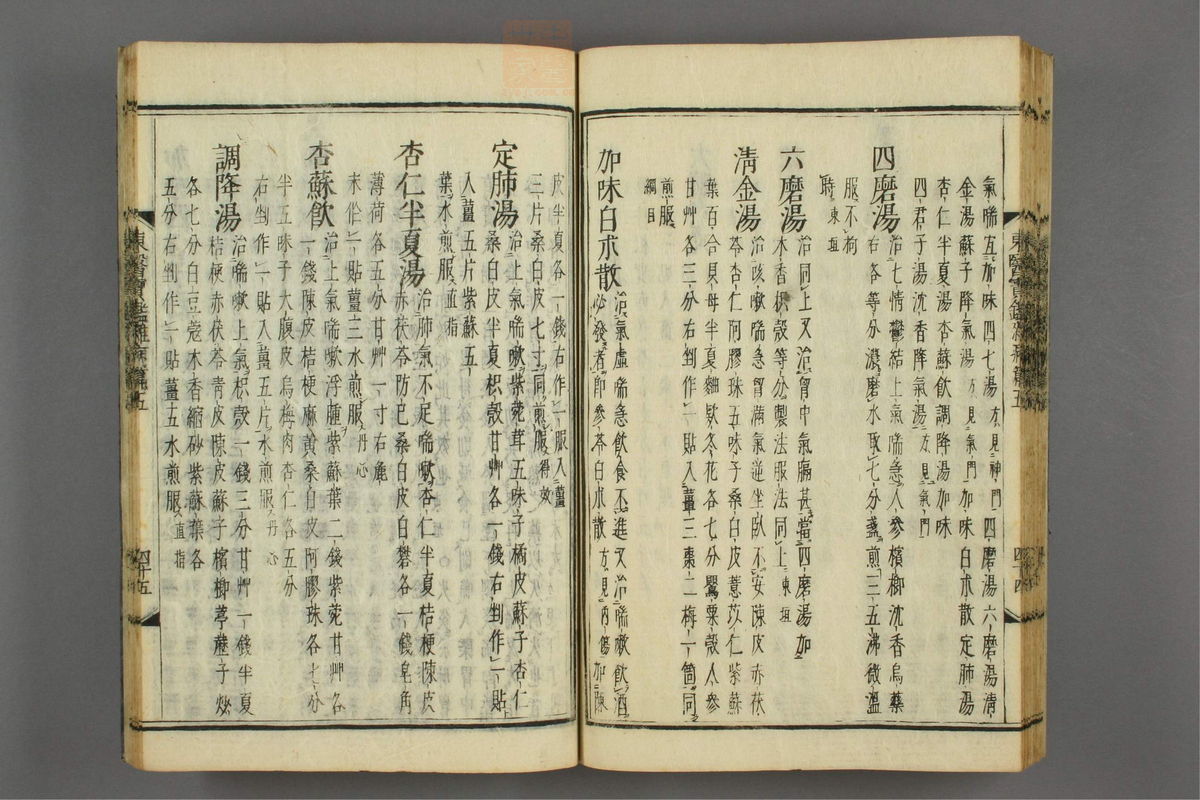 氣喘宜加味四七湯方見神門四磨湯六磨湯淸
金湯蘇子降氣湯方見氣門加味白朮散定肺湯
杏仁半夏湯杏蘇飮調降湯加味
四君子湯沈香降氣湯方見氣門
四磨湯治七情鬱結上氣喘急人參檳榔沈香烏藥
右各等分濃磨水取七分盞煎三五沸微溫
服不拘
時東垣
六磨湯治同上又治胃中氣痞甚當四磨湯加
木香枳殼等分製法服法同上東垣
淸金湯治咳嗽喘急胷滿氣逆坐臥不安陳皮赤茯
苓杏仁阿膠珠五味子桑白皮薏苡仁紫蘇
葉百合貝母半夏麯款冬花各七分罌粟殼人參
甘艸各三分右剉作一貼入薑三棗二梅一箇同
煎服
綱目
加味白朮散治氣虛喘急飮食不進又治喘嗽飮酒
必發者卽參苓白朮散方見內傷加陳
皮半夏各一錢右作一服入薑
三片桑白皮七寸同煎服得效
定肺湯治上氣喘嗽紫菀茸五味子橘皮蘇子杏仁
桑白皮半夏枳殼甘艸各一錢右剉作一貼
入薑五片紫蘇五
葉水煎服直指
杏仁半夏湯治肺氣不足喘嗽杏仁半夏桔梗陳皮
赤茯苓防己桑白皮白礬各一錢皂角
薄荷各五分甘艸一寸右麁
末作一貼薑三水煎服丹心
杏蘇飮治上氣喘嗽浮腫紫蘇葉二錢紫菀甘艸各
一錢陳皮桔梗麻黃桑白皮阿膠珠各七分
半五味子大腹皮烏梅肉杏仁各五分
右剉作一貼入薑五片水煎服丹心
調降湯治喘嗽上氣枳殼一錢三分甘艸一錢半夏
桔梗赤茯苓靑皮陳皮蘇子檳榔葶藶子炒
各七分白豆蔻木香縮砂紫蘇葉各
五分右剉作一貼薑五水煎服直指
東醫寶鑑雜病篇五
四十四
東醫寶鑑雜病篇五
四十五